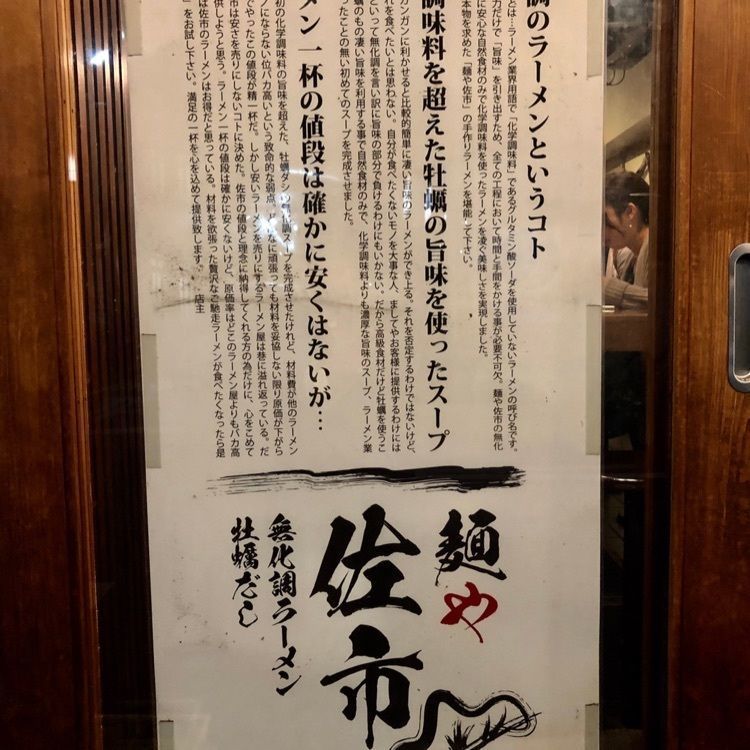 調のラーメンというコト
とは…ラーメン業界用語で「化学調味料」であるグルタミン酸ソーダを使用していないラーメンの呼び名です。
力だけで「旨味」を引き出すため、全ての工程において時間と手間をかける事が必要不可欠。麺や佐市の無化
に安心な自然食材のみで化学調味料を使ったラーメンを凌ぐ美味しさを実現しました。
本物を求めた「麺や佐市」の手作りラーメンを堪能して下さい。
調味料を超えた牡蠣の旨味を使ったスープ
ガンガンに利かせると比較的簡単に凄い旨味のラーメンができ上る。それを否定するわけではないけど、
れを食べたいとは思わない。自分が食べたくないモノを大事な人、ましてやお客様に提供するわけには
といって無化調を言い訳に旨味の部分で負けるわけにもいかない。だから高級食材だけど牡蠣を使うこ
蠣のもの凄い旨味を利用する事で自然食材のみで、化学調味料よりも濃厚な旨味のスープ、ラーメン業
ったことの無い初めてのスープを完成させました。
メン一杯の値段は確かに安くはないが…
初の化学調味料の旨味を超えた、牡蠣ダシの無化調スープを完成させたけれど、材料費が他のラーメン
ノにならない位バカ高いという致命的な弱点。どんなに頑張っても材料を妥協しない限り原価が下がら
でやったこの値段が精一杯だ。しかし安いラーメンを売りにするラーメン屋は巷に溢れ返っている。だ
市は安さを売りにしないコトに決めた。佐市の値段と理念に納得してくれる方の為だけに、心をこめて
供しようと思う。ラーメン一杯の値段は確かに安くないけど、原価率はどこのラーメン屋よりもバカ高
は佐市のラーメンはお得だと思っている。材料を欲張った贅沢なご馳走ラーメンが食べたくなったら是
」をお試し下さい。満足の一杯を心を込めて提供致します。 店主
麺や
佐市
無化調ラーメン
牡蠣だし